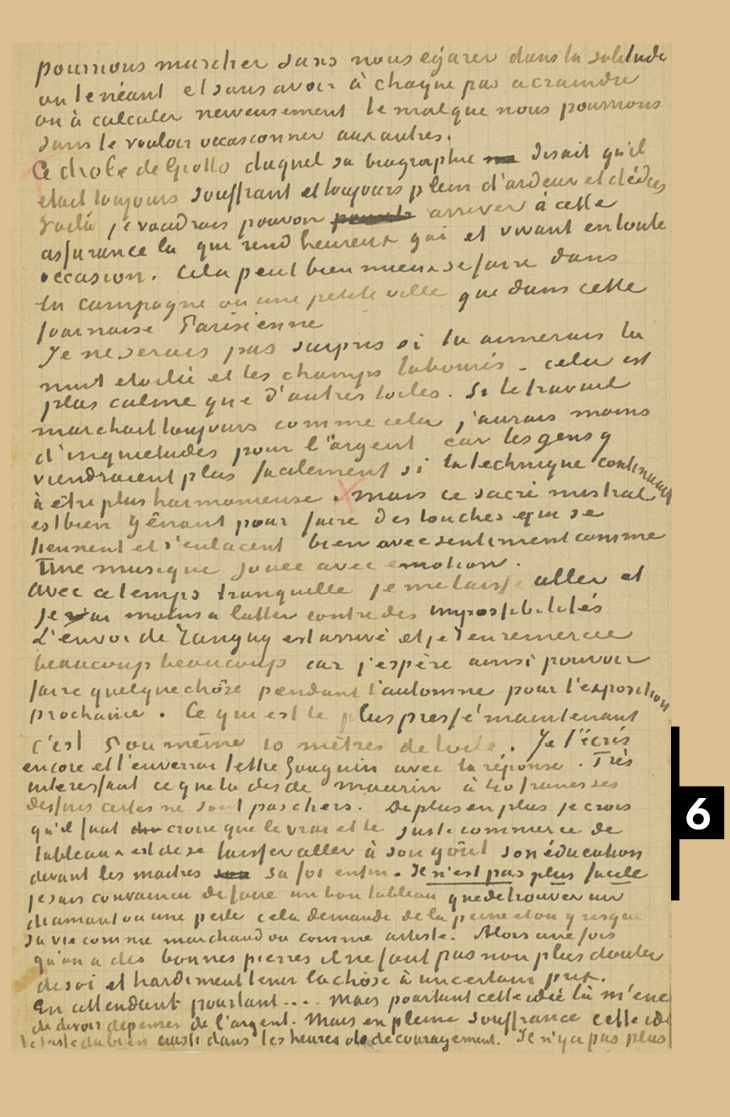 pourrions marcher sans nous égarer dans la solitude
ou le néant et sans avoir à chaque pas a craindre
ou à calculer nerveusement le mal que nous pourrions
sans le vouloir occasionner aux autres.
Ce drole de Giotto duquel sa biographie disait qu'il
était toujours souffrant et toujours plein d'ardeur et d'idées
Voilà je voudrais pouvoir arriver à cette
assurance la qui rend heureux gai et vivant en toute
occasion. Cela peut bien mieux se faire dans
la campagne ou une petite ville que dans cette
fournaise Parisienne
Je ne serais pas surpris si tu aimerais la
nuit etoilée et les champs labourés – cela est
plus calme que d'autres toiles. Si le travail
marchait toujours comme cela j'aurais moins
d'inquietudes pour l'argent car les gens y
viendraient plus facilement si la technique continuait
à être plus harmonieuse. mais ce sacré mistral
est bien gênant pour faire des touches qui se
tiennent et s'enlacent bien avec sentiment comme
Une musique jouée avec emotion.
Avec ce temps tranquille je me laisse aller et
Je ai moins a lutter contre des impossibilités
L'envoi de Tanguy est arrivé et je t'en remercie
beaucoup beaucoup car j'espère ainsi pouvoir
faire quelque chôse pendant l'automne pour l'exposition
prochaine. Ce qui est le plus pressé maintenant
c'est 5 ou même 10 mètres de toile. Je t'écris
encore et t'enverrai lettre Gauguin avec la réponse. Très
interessant ce que tu dis de maurin à 40 francs ses
dessins certes ne sont pas chers. De plus en plus je crois
qu'il faut croire que le vrai et le juste commerce de
tableaux est de se laisser aller à son goût son éducation
devant les maitres sa foi enfin. Il n'est pas plus facile
je suis convaincu de faire un bon tableau que de trouver un
diamant ou une perle cela demande de la peine et on y risque
sa vie comme marchand ou comme artiste. Alors une fois
qu'on a des bonnes pierres il ne faut pas non plus douter
de soi et hardiment tenir la chôse à un certain prix.
En attendant pourtant.... Mais pourtant cette idée là m'enc
de devoir dépenser de l'argent. Mais en pleine souffrance cette idé
du bien aussi dans les heures de découragement. Il n'y a pas plus
6